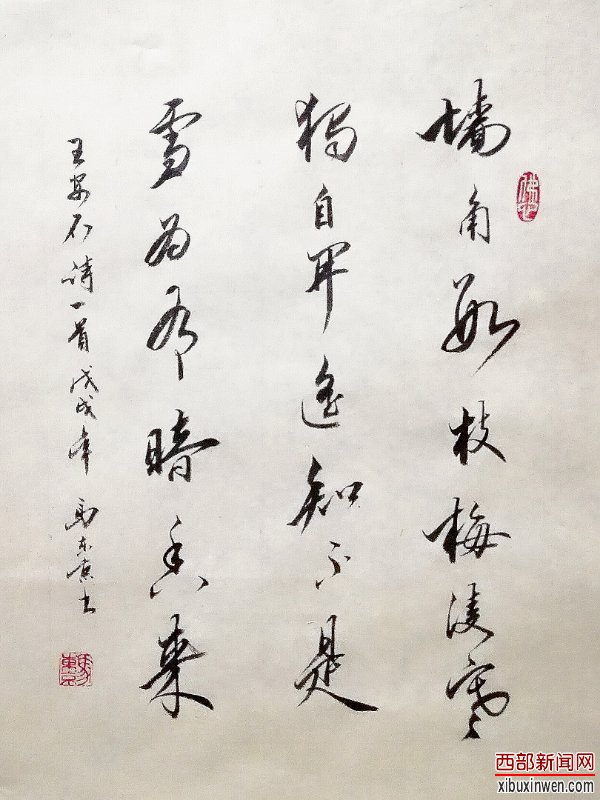 墙角数枝梅凌寒
獨自開遥知不是
雪為有暗香来
王安石詩一首戊戌年 馬东書
西部新闻网
xibuxinwen.com